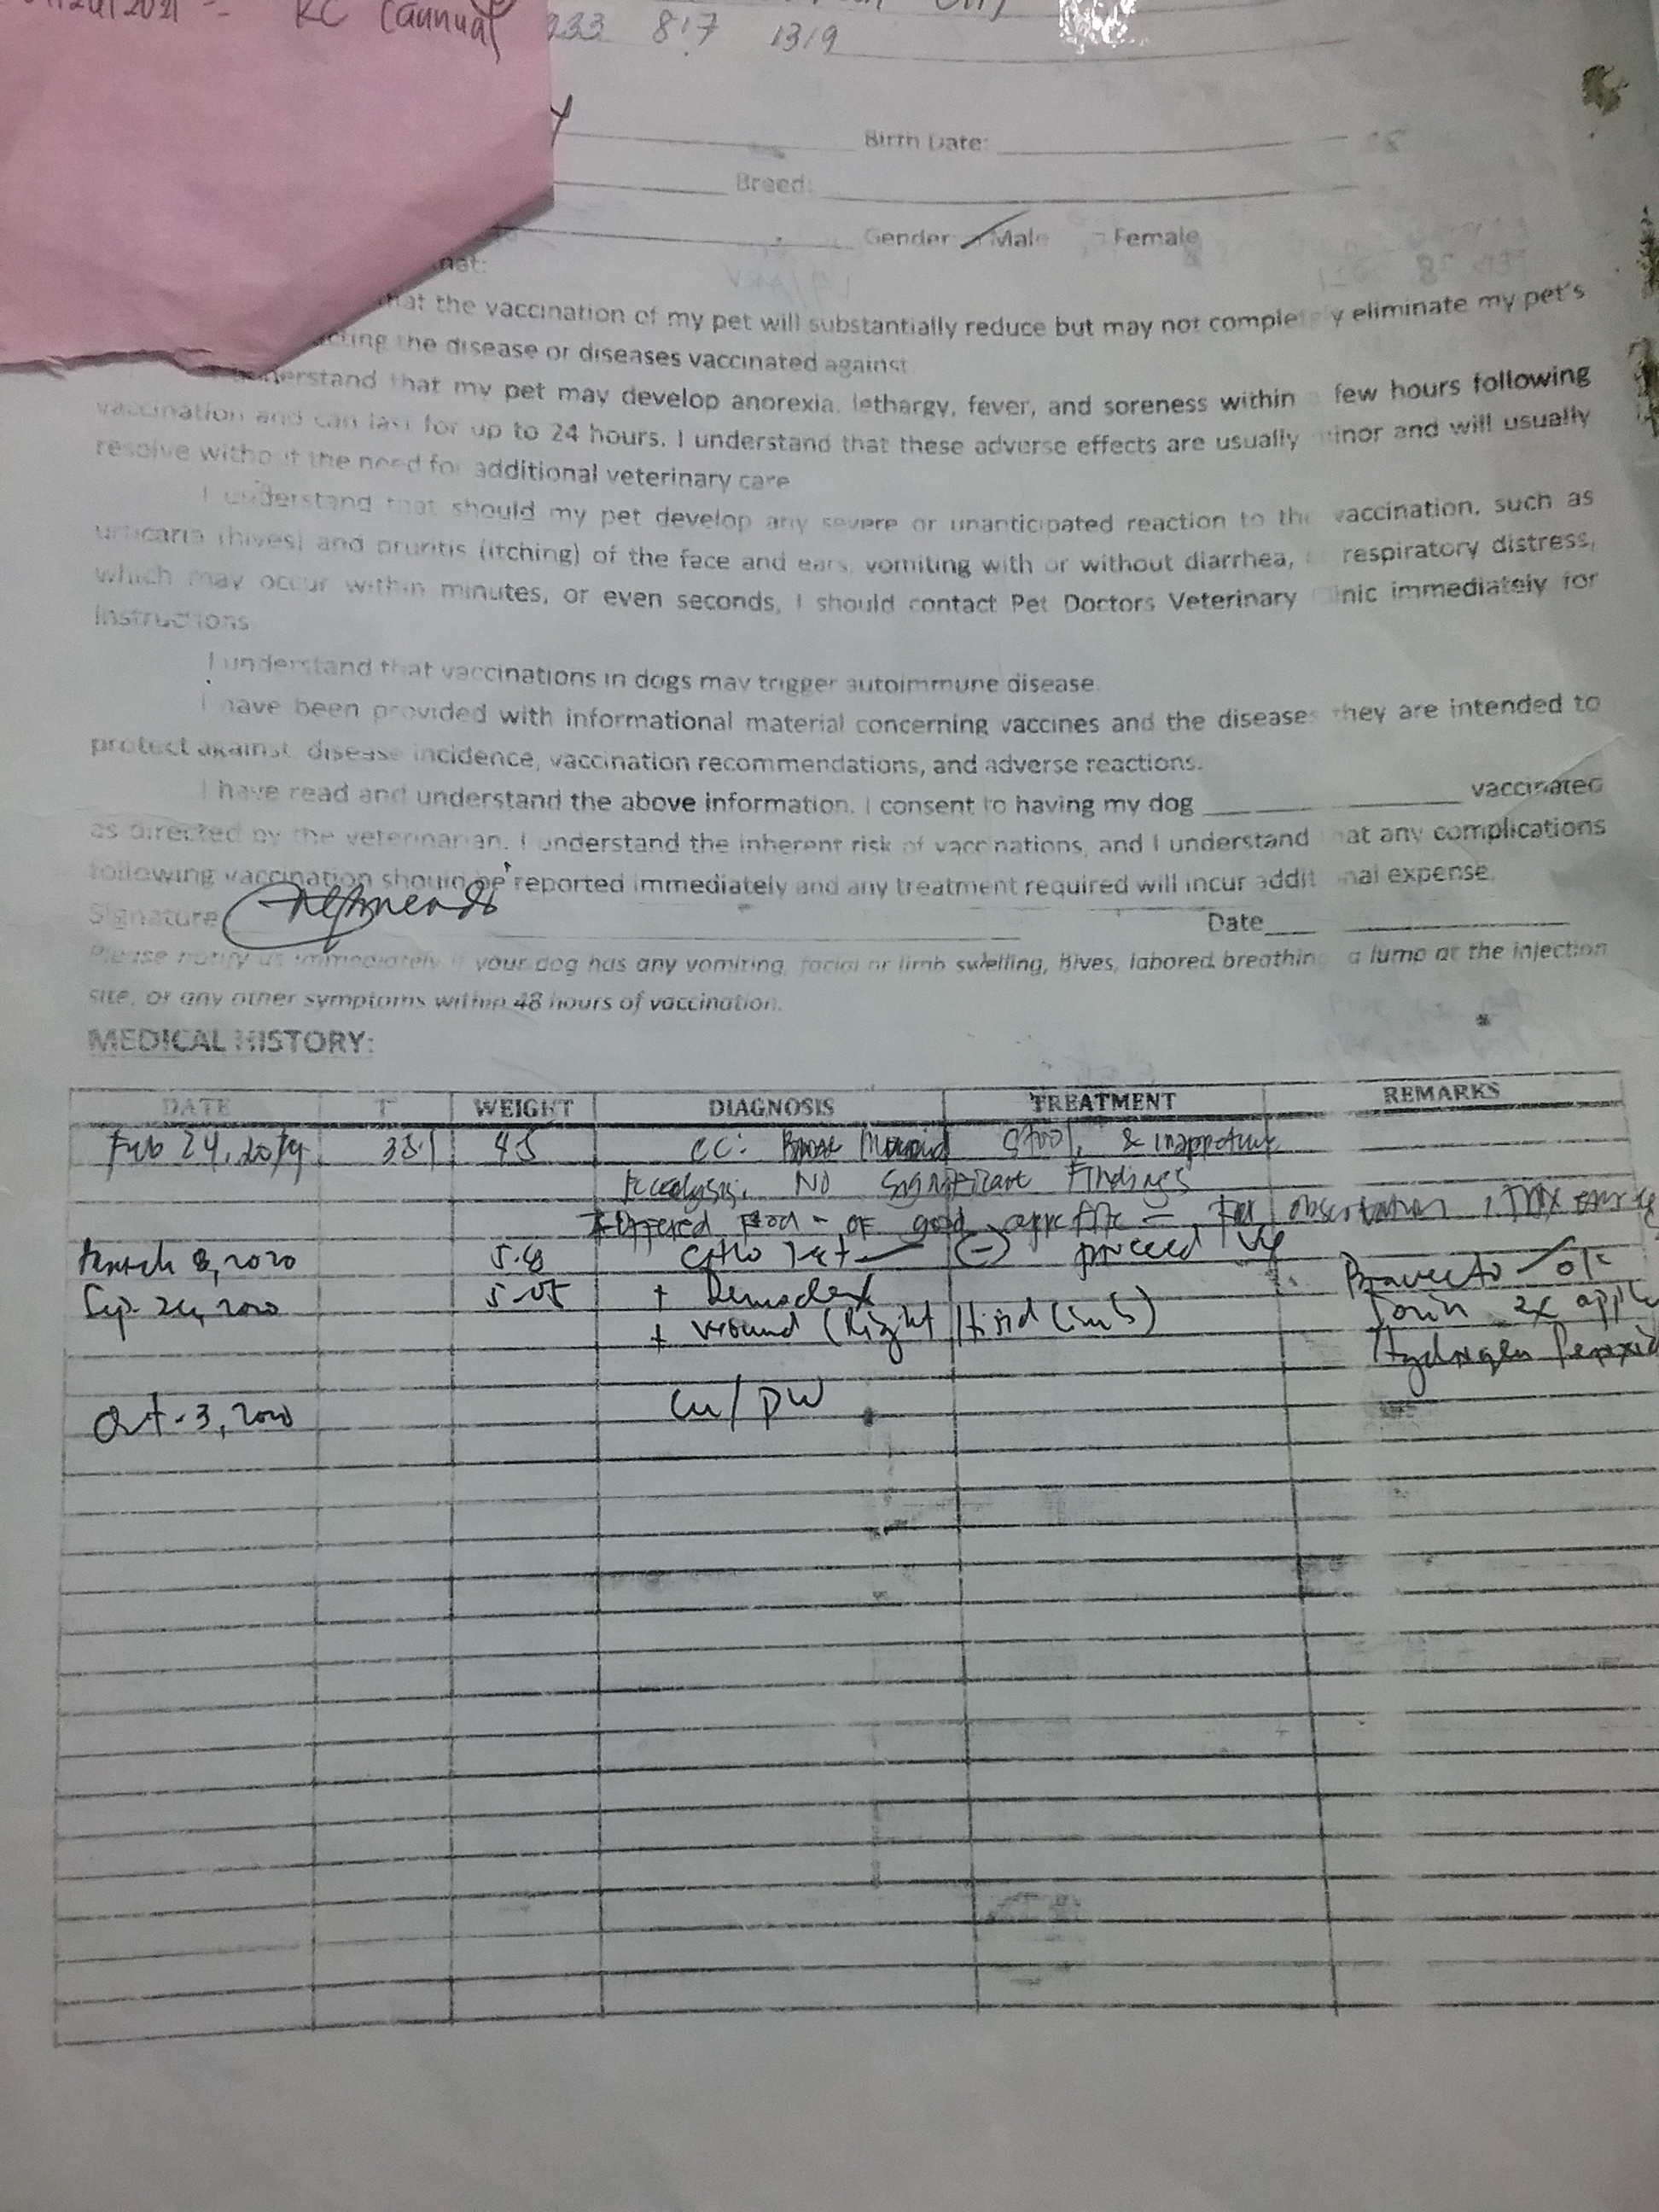 RC (annual
233 817 1319
Birth Date:
Breed:
Gender Male Female
that the vaccination of my pet will substantially reduce but may not completely eliminate my pet's
the disease or diseases vaccinated against
understand that my pet may develop anorexia, lethargy, fever, and soreness within few hours following
vaccination and can last for up to 24 hours. I understand that these adverse effects are usually minor and will usually
resolve without the need for additional veterinary care
I understand that should my pet develop any severe or unanticipated reaction to the vaccination, such as
urticaria (hives) and pruritis (itching) of the face and ears, vomiting with or without diarrhea, respiratory distress,
which may occur within minutes, or even seconds, I should contact Pet Doctors Veterinary Clinic immediately for
instructions
I understand that vaccinations in dogs may trigger autoimmune disease.
I have been provided with informational material concerning vaccines and the diseases they are intended to
protect against, disease incidence, vaccination recommendations, and adverse reactions.
I have read and understand the above information. I consent to having my dog vaccinated
as directed by the veterinarian. I understand the inherent risk of vaccinations, and I understand that any complications
following vaccination should be reported immediately and any treatment required will incur additional expense.
Signature Date
Please notify us immediately if your dog has any vomiting, facial or limb swelling, hives, labored breathing a lump at the injection
site, or any other symptoms within 48 hours of vaccination.
MEDICAL HISTORY:
DATE T WEIGHT DIAGNOSIS TREATMENT REMARKS
Feb 24, 2019 CC: stool, & inappetence
Fecalysis: No Significant Findings
Offered food - of good appetite For observation
March 8, 2020 proceed
Sep. 2020 + Bravecto
+ wound (Right Hind Limb) 2x
Hydrogen Peroxid
Oct - 3, 2020